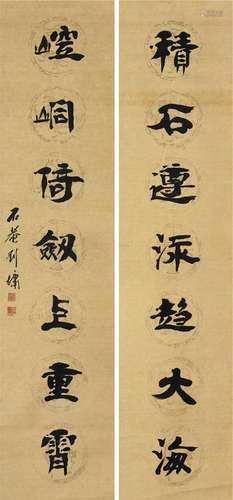 積石導派趨大海
崆峒倚劔上重霄
石菴劉墉